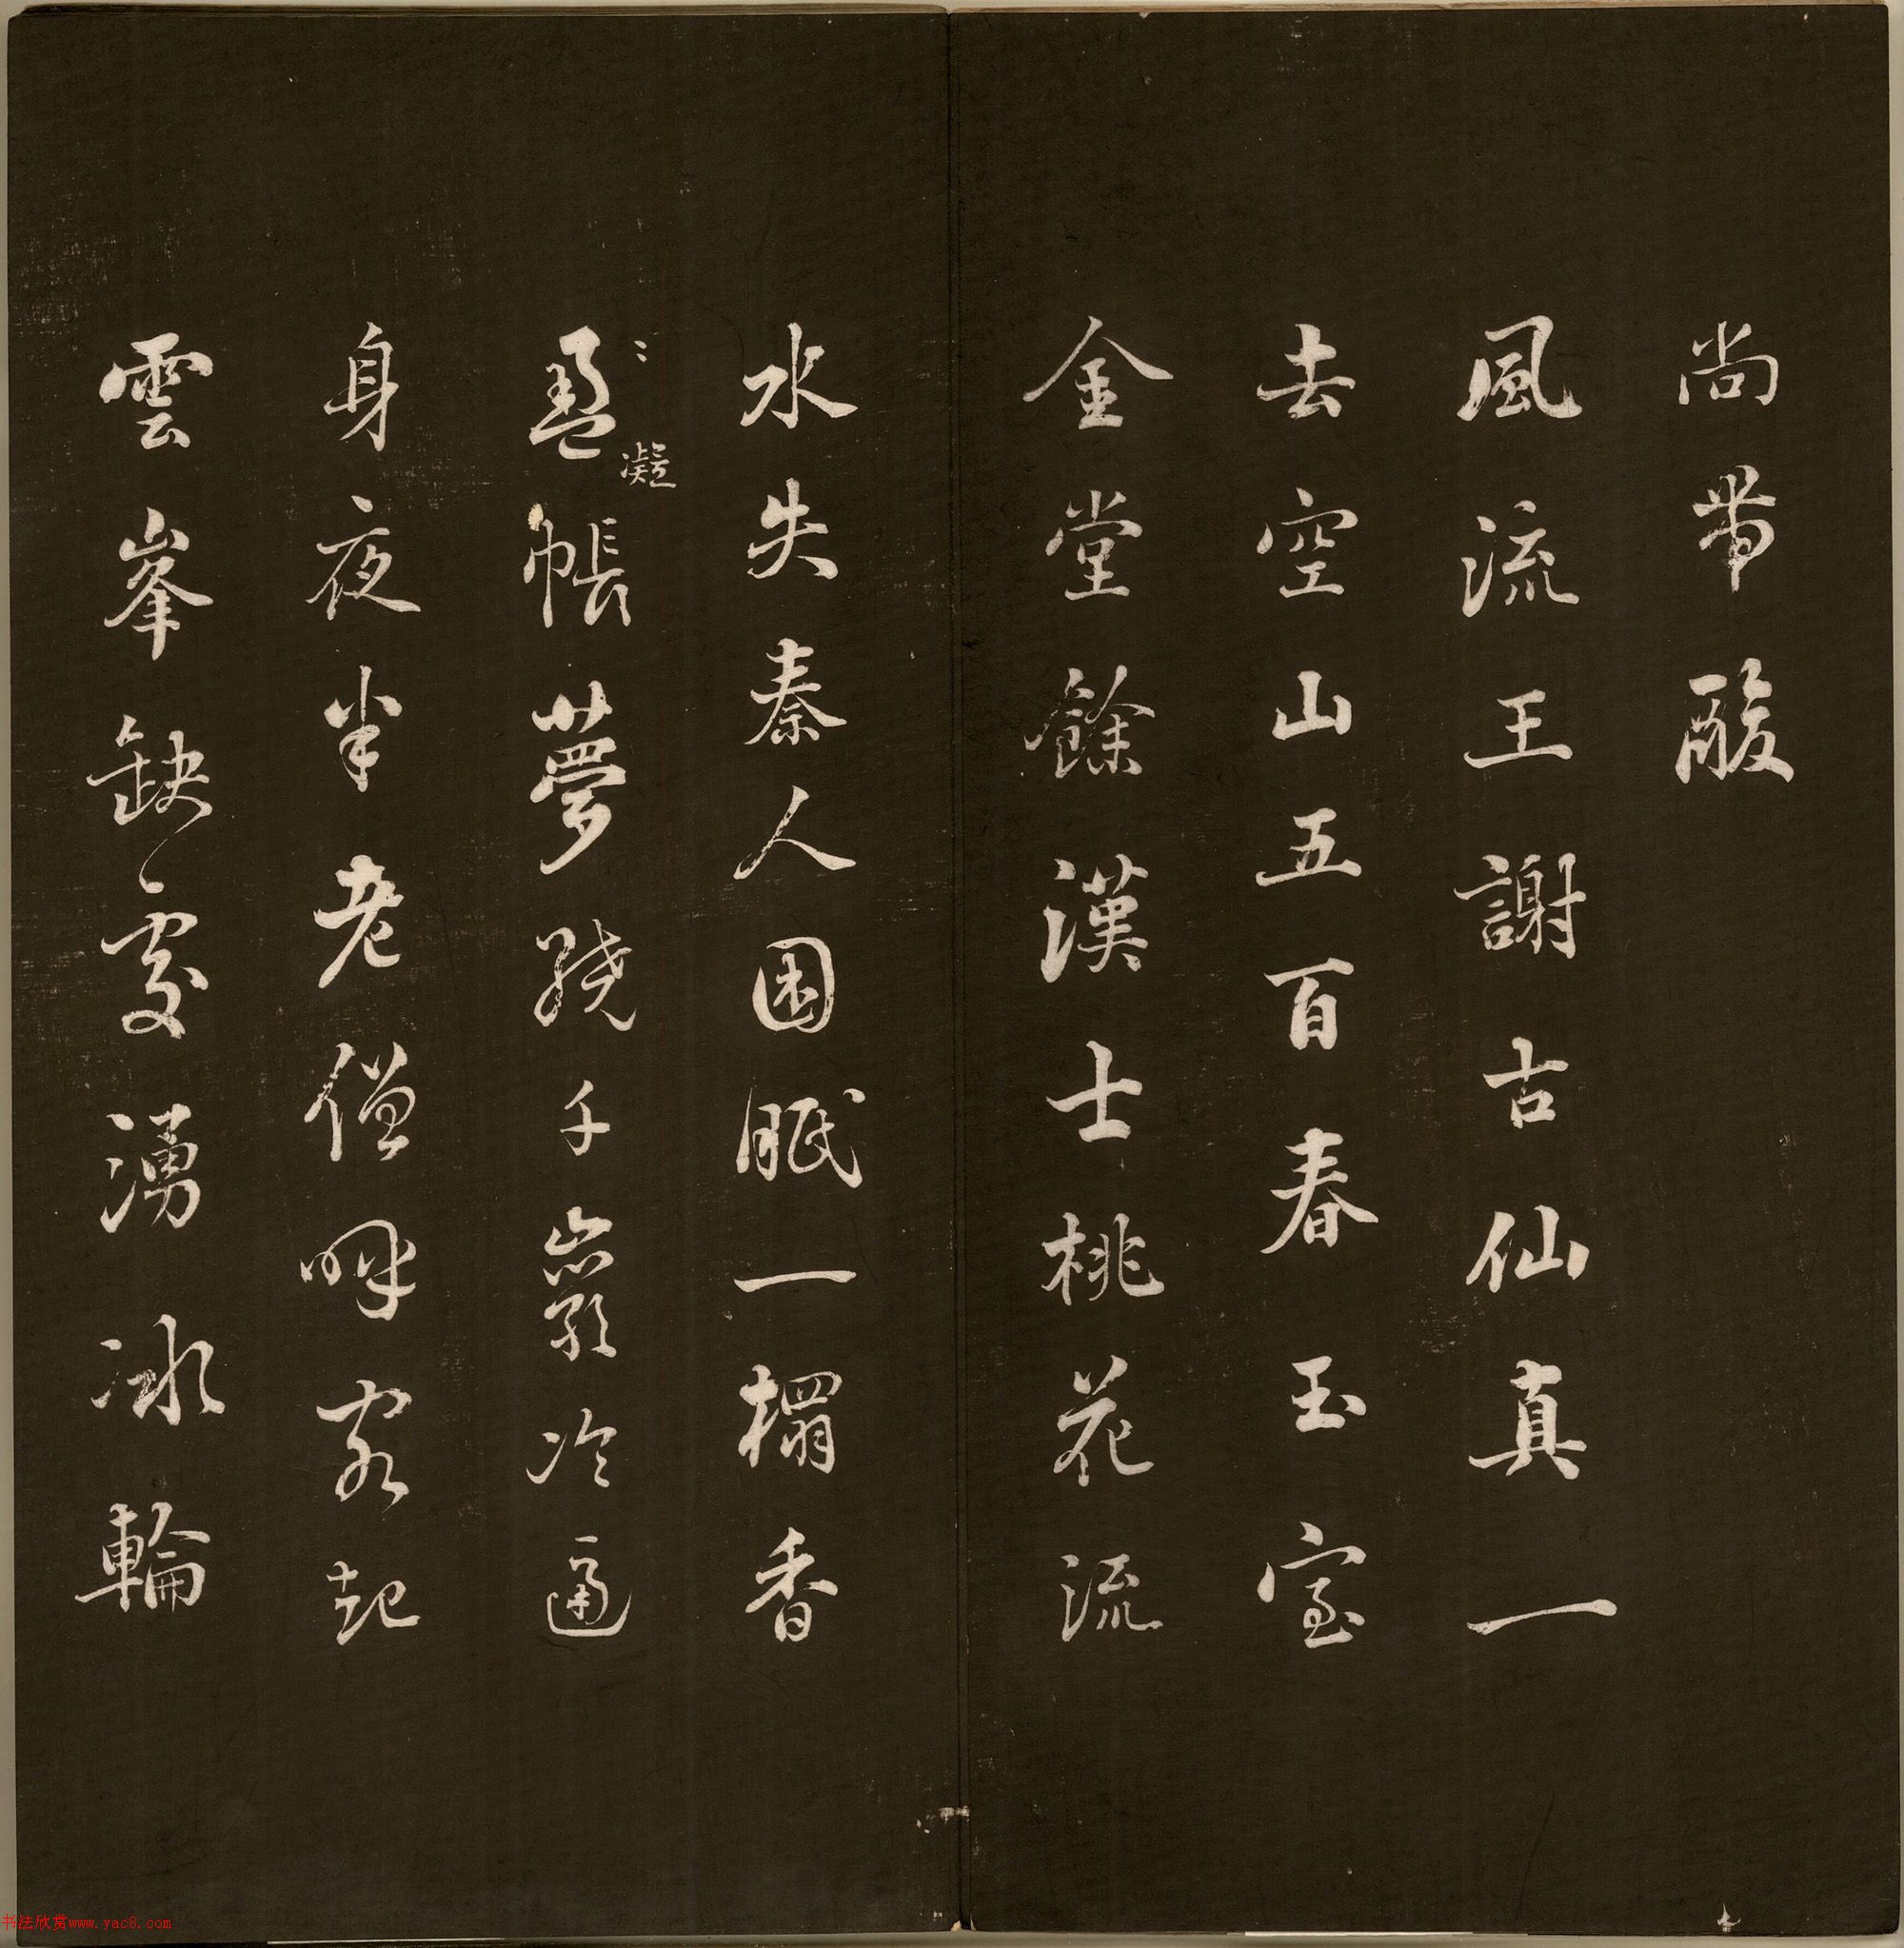 尚帶酸
風流王謝古仙真一
去空山五百春玉室
金堂餘漢士桃花流
水失秦人困眠一榻香
凝
帳夢繞千巖冷逼
身夜半老僧呼客起
雲峯缺處湧冰輪
书法欣赏www.yac8.com